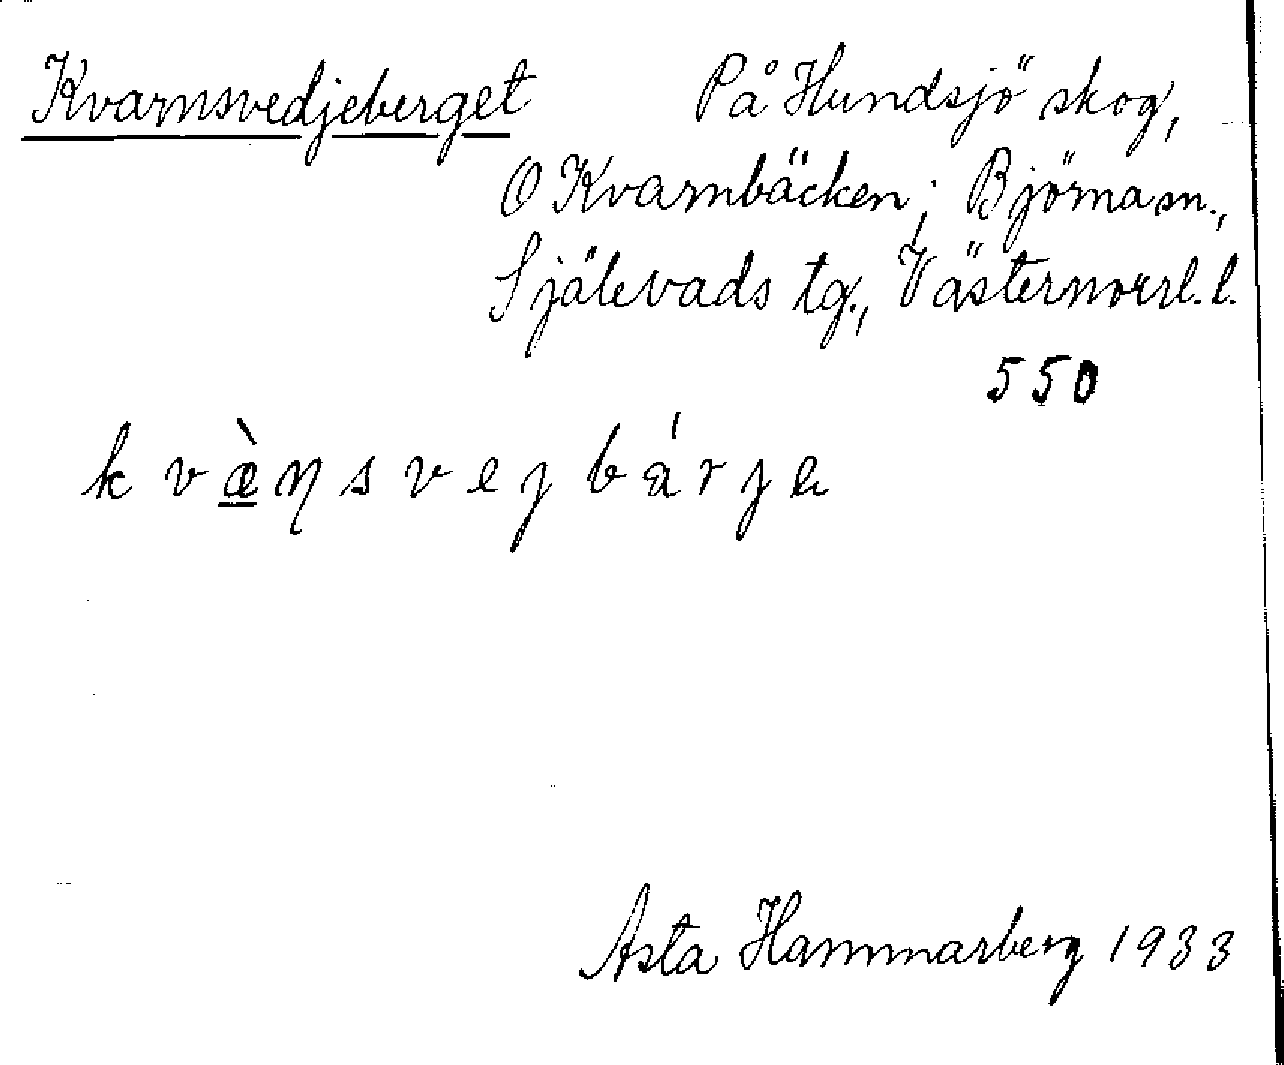 Kvarnsvedjeberget På Hundsjö skog,
O Kvarnbäcken; Björna sn.,
Själevads tg., Västernorrl. l.
550
k v æ̀ ŋ s v e j b á r j e
Asta Hammarberg 1933